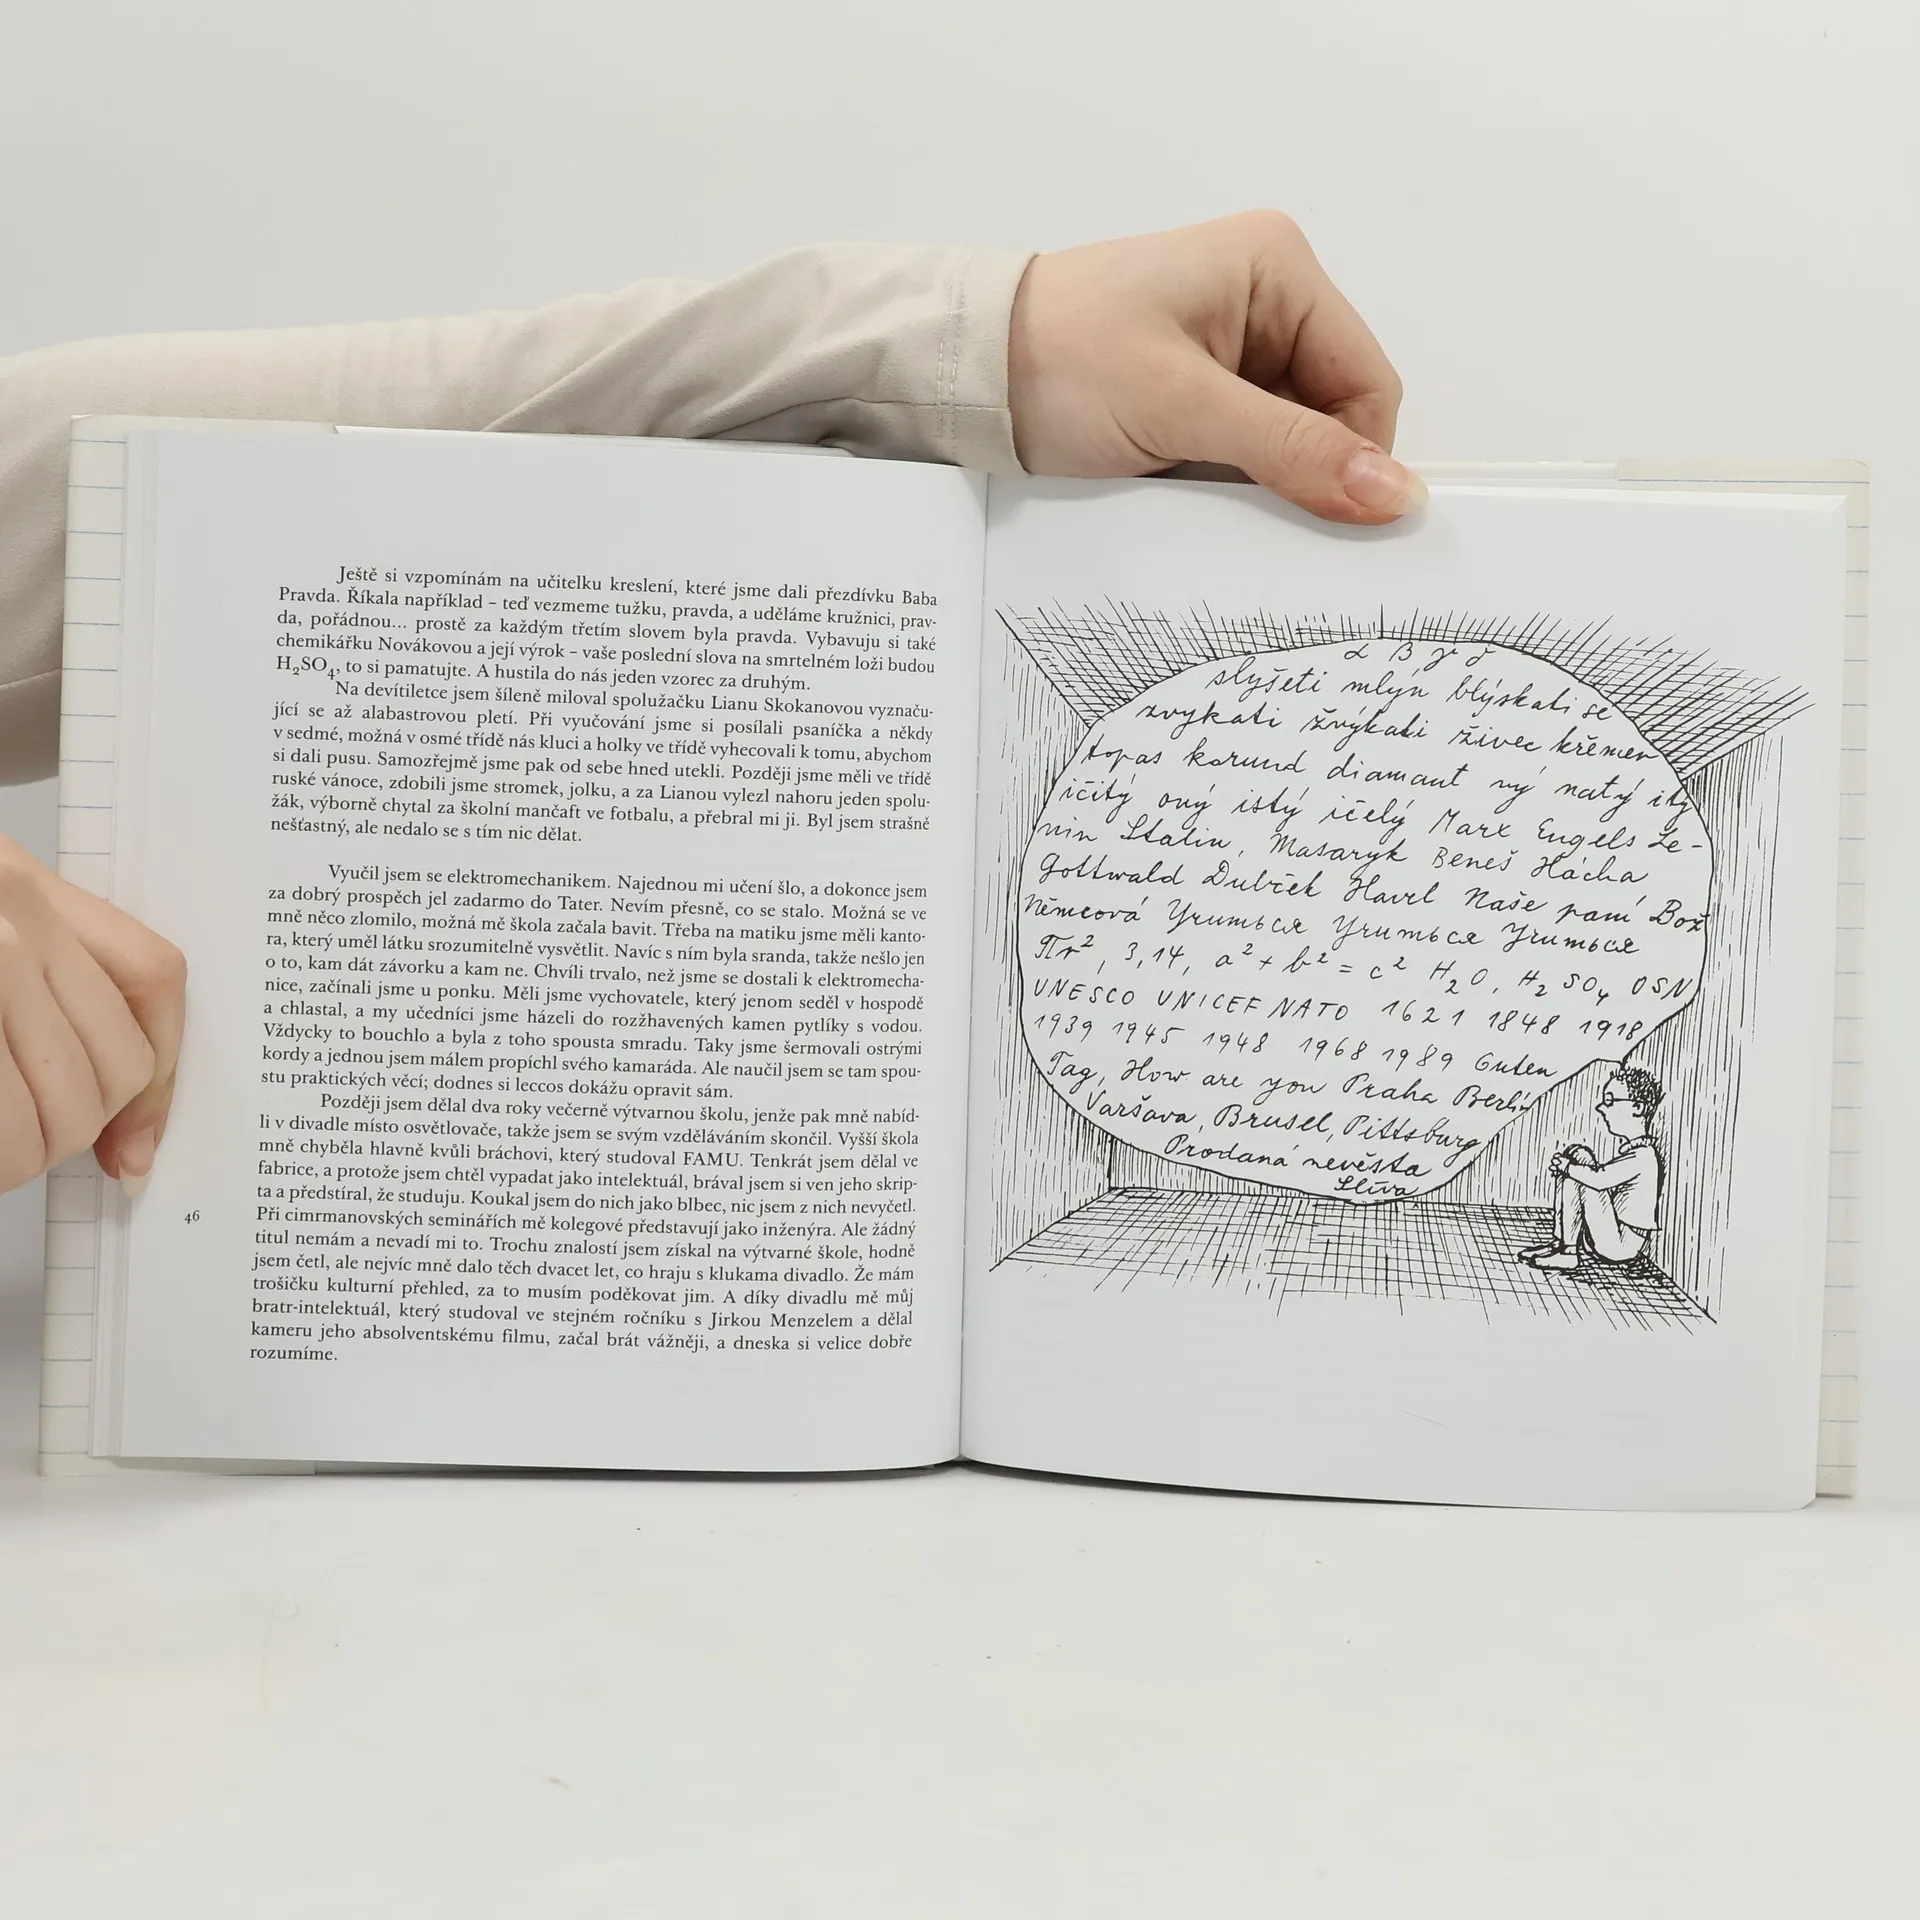 Ještě si vzpomínám na učitelku kreslení, které jsme dali přezdívku Baba
Pravda. Říkala například – teď vezmeme tužku, pravda, a uděláme kružnici, prav-
da, pořádnou... prostě za každým třetím slovem byla pravda. Vybavuju si také
chemikářku Novákovou a její výrok – vaše poslední slova na smrtelném loži budou
H₂SO₄, to si pamatujte. A hustila do nás jeden vzorec za druhým.
Na devítiletce jsem šíleně miloval spolužačku Lianu Skokanovou vyznaču-
jící se až alabastrovou pletí. Při vyučování jsme si posílali psaníčka a někdy
v sedmé, možná v osmé třídě nás kluci a holky ve třídě vyhecovali k tomu, abychom
si dali pusu. Samozřejmě jsme pak od sebe hned utekli. Později jsme měli ve třídě
ruské vánoce, zdobili jsme stromek, jolku, a za Lianou vylezl nahoru jeden spolu-
žák, výborně chytal za školní mančaft ve fotbalu, a přebral mi ji. Byl jsem strašně
nešťastný, ale nedalo se s tím nic dělat.
Vyučil jsem se elektromechanikem. Najednou mi učení šlo, a dokonce jsem
za dobrý prospěch jel zadarmo do Tater. Nevím přesně, co se stalo. Možná se ve
mně něco zlomilo, možná mě škola začala bavit. Třeba na matiku jsme měli kanto-
ra, který uměl látku srozumitelně vysvětlit. Navíc s ním byla sranda, takže nešlo jen
o to, kam dát závorku a kam ne. Chvíli trvalo, než jsme se dostali k elektromecha-
nice, začínali jsme u ponku. Měli jsme vychovatele, který jenom seděl v hospodě
a chlastal, a my učedníci jsme házeli do rozžhavených kamen pytlíky s vodou.
Vždycky to bouchlo a byla z toho spousta smradu. Taky jsme šermovali ostrými
kordy a jednou jsem málem propíchl svého kamaráda. Ale naučil jsem se tam spou-
stu praktických věcí; dodnes si leccos dokážu opravit sám.
Později jsem dělal dva roky večerně výtvarnou školu, jenže pak mně nabíd-
li v divadle místo osvětlovače, takže jsem se svým vzděláváním skončil. Vyšší škola
mně chyběla hlavně kvůli bráchovi, který studoval FAMU. Tenkrát jsem dělal ve
fabrice, a protože jsem chtěl vypadat jako intelektuál, brával jsem si ven jeho skrip-
ta a předstíral, že studuju. Koukal jsem do nich jako blbec, nic jsem z nich nevyčetl.
Při cimrmanovských seminářích mě kolegové představují jako inženýra. Ale žádný
titul nemám a nevadí mi to. Trochu znalostí jsem získal na výtvarné škole, hodně
jsem četl, ale nejvíc mně dalo těch dvacet let, co hraju s klukama divadlo. Že mám
trošičku kulturní přehled, za to musím poděkovat jim. A díky divadlu mě můj
bratr-intelektuál, který studoval ve stejném ročníku s Jirkou Menzelem a dělal
kameru jeho absolventskému filmu, začal brát vážněji, a dneska si velice dobře
rozumíme.
46
α β γ δ
slyšeti mlýn blýskati se
zvykati žvýkati živec křemen
topas korund diamant ný natý itý
ičitý ový istý ičelý Marx Engels Le-
nin Stalin, Masaryk Beneš Hácha
Gottwald Dubček Havel Naše paní Bož
Němcová Учиться Учиться Учиться
πr², 3,14, a² + b² = c² H₂O, H₂SO₄ OSN
UNESCO UNICEF NATO 1621 1848 1918
1939 1945 1948 1968 1989 Guten
Tag, How are you Praha Berlín
Varšava, Brusel, Pittsburg
Prodaná nevěsta
Slíva